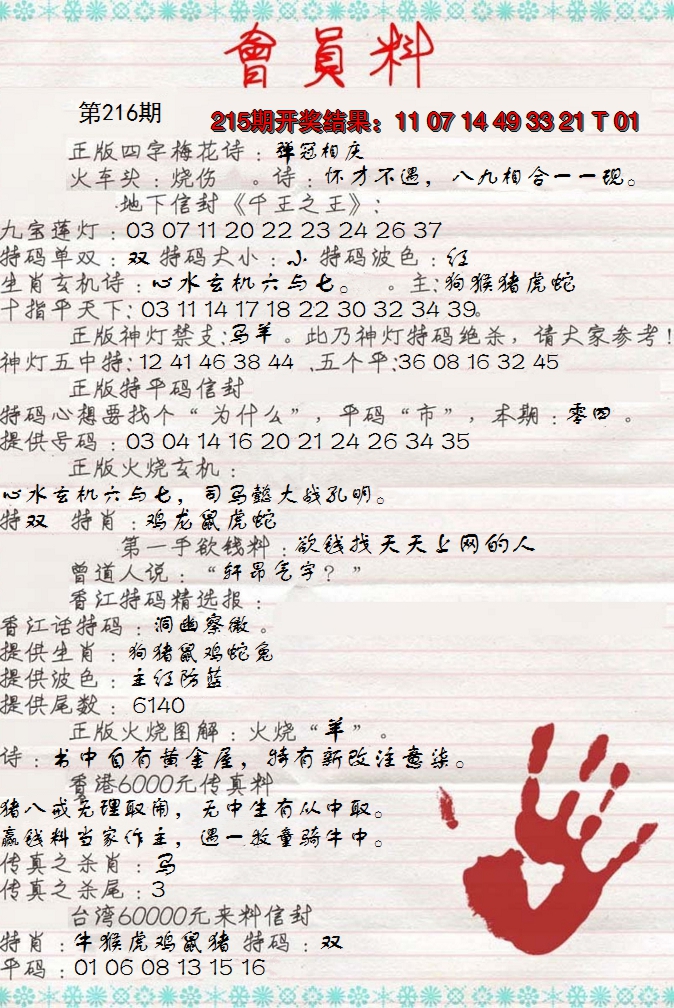 會員料
第216期
215期开奖结果：11 07 14 49 33 21 T 01
正版四字梅花诗：弹冠相庆
火车头：烧伤 。诗：怀才不遇，八九相合一一现。
地下信封《千王之王》：
九宝莲灯：03 07 11 20 22 23 24 26 37
特码单双：双 特码大小：小 特码波色：红
生肖玄机诗：心水玄机六与七。 。主：狗猴猪虎蛇
十指平天下：03 11 14 17 18 22 30 32 34 39。
正版神灯禁支：马羊。此乃神灯特码绝杀，请大家参考！
神灯五中特：12 41 46 38 44 .五个平：36 08 16 32 45
正版特平码信封
特码心想要找个“为什么”，平码“市”，本期：零四。
提供号码：03 04 14 16 20 21 24 26 34 35
正版火烧玄机：
心水玄机六与七，司马懿大战孔明。
特双 特肖：鸡龙鼠虎蛇
第一手欲钱料：欲钱找天天上网的人
曾道人说：“轩昂气宇？”
香江特码精选报：
香江话特码：洞幽察微。
提供生肖：狗猪鼠鸡蛇兔
提供波色：主红防蓝
提供尾数：6140
正版火烧图解：火烧“羊”。
诗：书中自有黄金屋，特有新改注意柒。
香港6000元传真料
猪八戒无理取闹，无中生有从中取。
赢钱料当家作主，遇一牧童骑牛中。
传真之杀肖：马
传真之杀尾：3
台湾60000元来料信封
特肖：牛猴虎鸡鼠猪 特码：双
平码：01 06 08 13 15 16